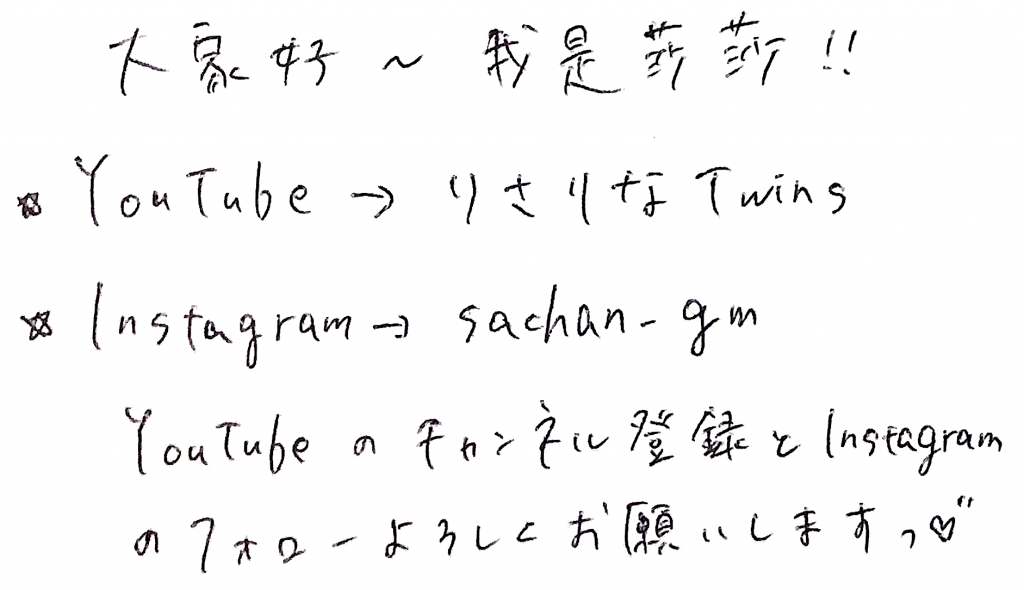 大家好～我是莎莎!!
☆ YouTube → りさりなTwins
☆ Instagram → sachan-gm
YouTubeのチャンネル登録とInstagram
のフォローよろしくお願いしますっ♡"